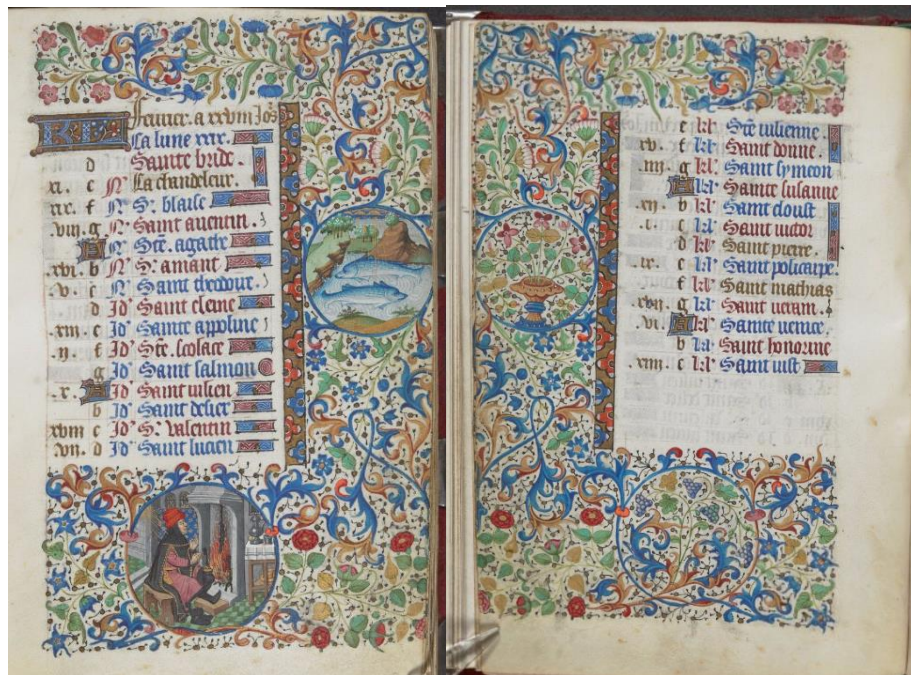 KL feurier. a xxviii Jos
La lune xxx.
d Sainte bride.
xi. e N' La chandeleur.
xix. f N' S'. blaise
.viii. g N' Saint auentin.
A N' Ste. agathe
.xvi. b N' S'. amant
.v. c N' Saint theodore.
d Id' Saint elene
.xiii. e Id' Sainte appoline
.ii. f Id' Ste. scolace
g Id' Saint salmon
.x. A Id' Saint iulien
b Id' Saint delier
xviii c Id' S'. valentin
.vii. d Id' Saint lucien
e kl' Ste iulienne.
.xv. f kl' Saint donne.
.iiii. g kl' Saint symeon
A kl' Sainte susanne
.xii. b kl' Saint cloust
.i. c kl' Saint uictor
d kl' Saint pierre.
.ix. e kl' Saint policarpe
f kl' Saint mathias
.xvii. g kl' Saint ueram.
.vi. A kl' Sainte uenice.
b kl' Saint honorine
.xiiii. c kl' Saint iust